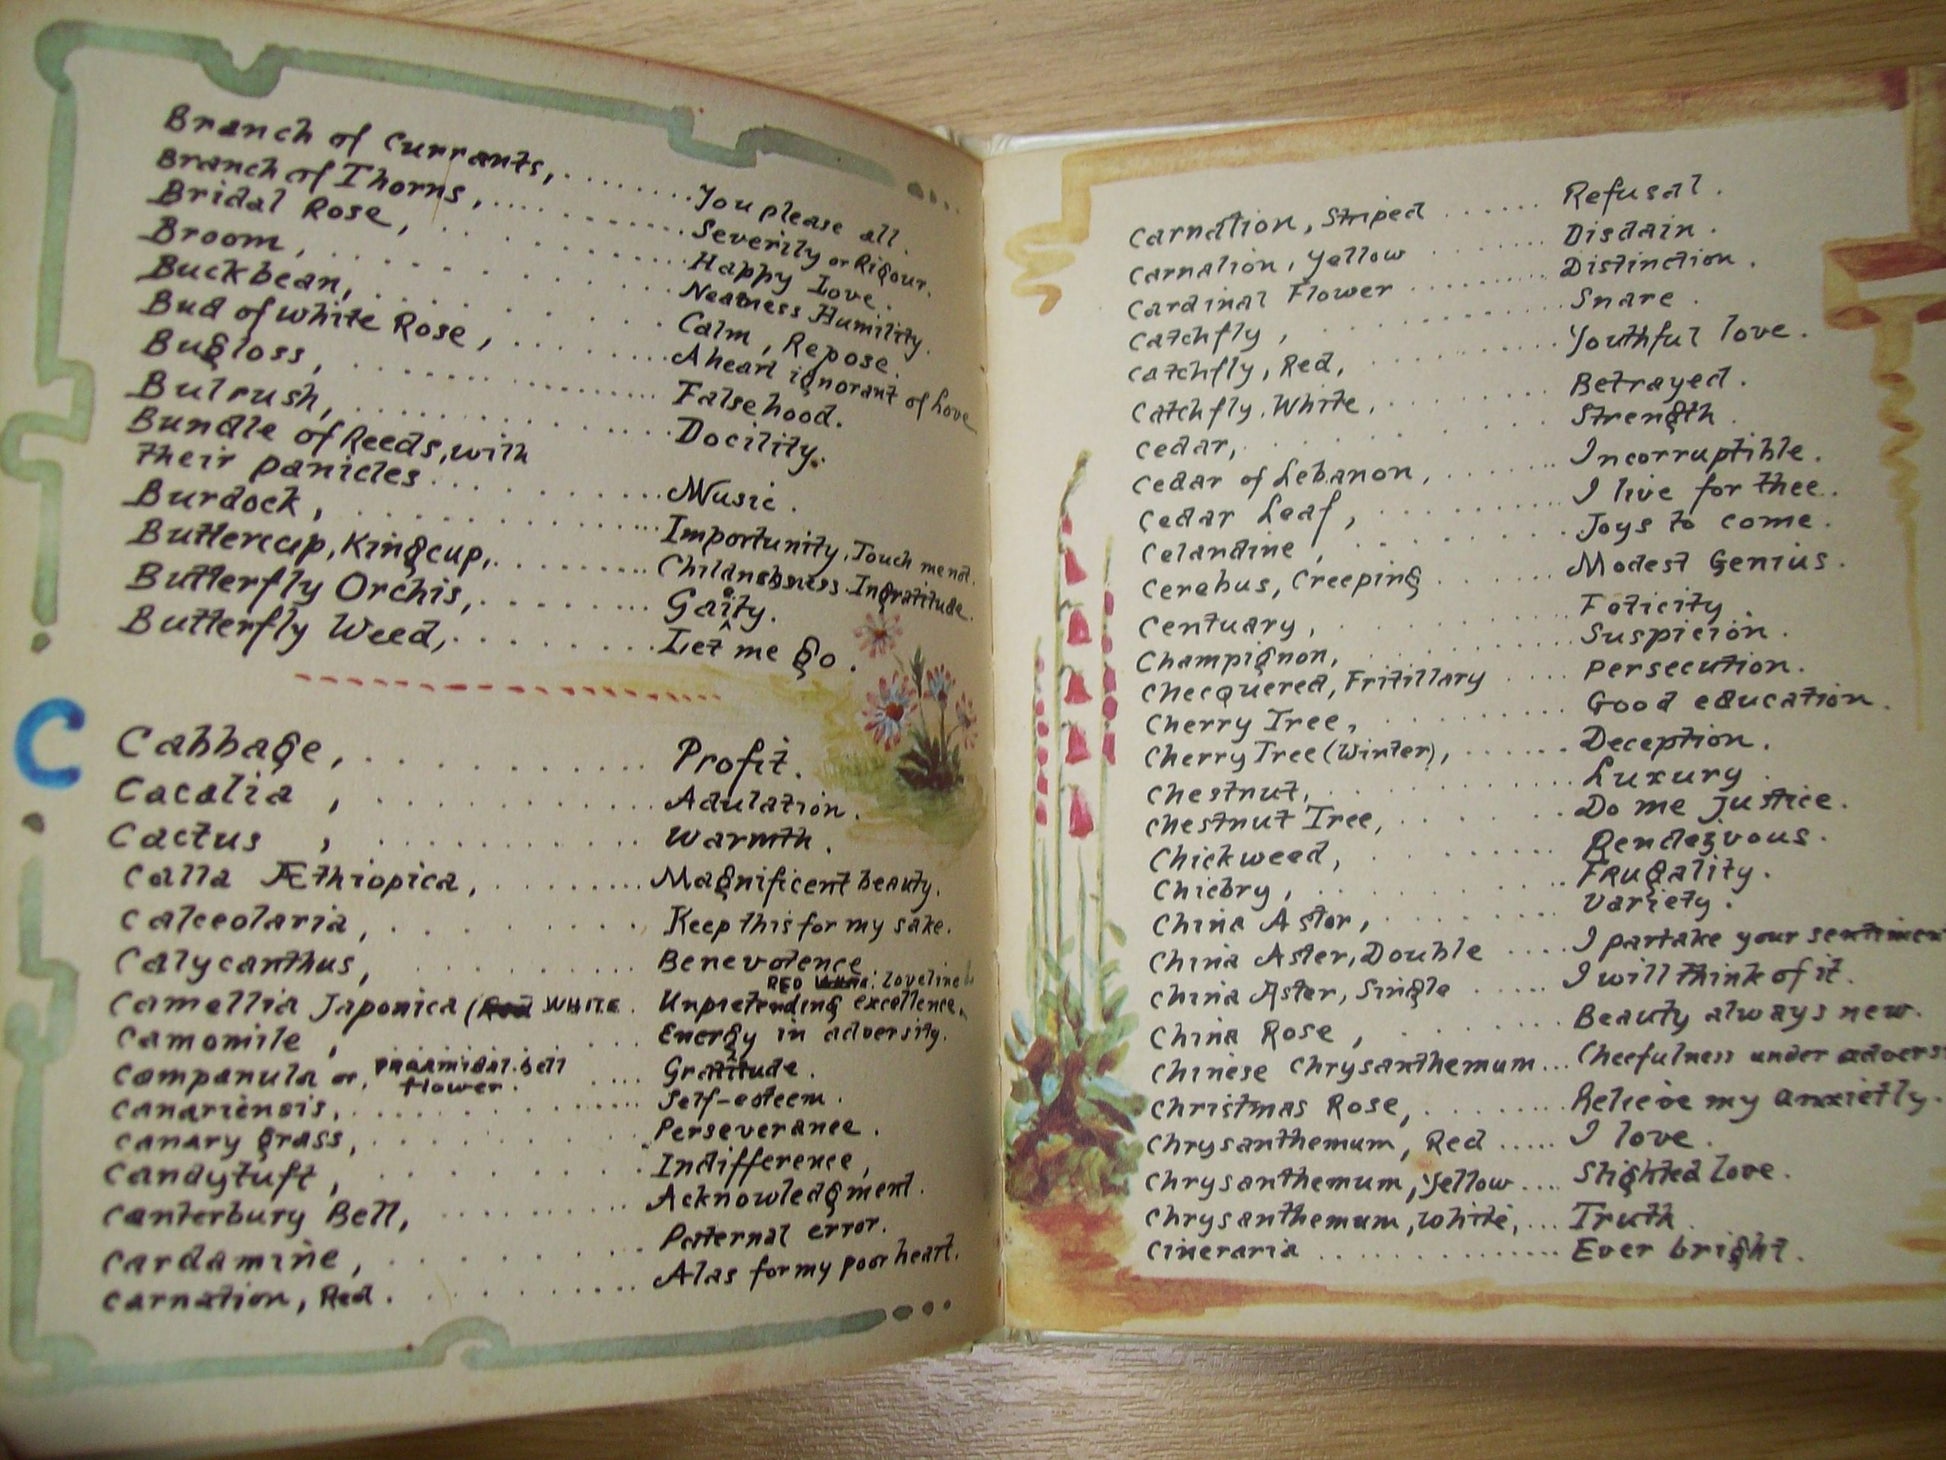 Branch of Currants, ....... You please all.
Branch of Thorns, .......... Severity or Rigour.
Bridal Rose, .......... Happy Love.
Broom, .......... Neatness Humility.
Buckbean, .......... Calm, Repose.
Bud of white Rose, .......... A heart ignorant of Love
Bugloss, .......... Falsehood.
Bulrush, .......... Docility.
Bundle of Reeds, with
their panicles .......... Music.
Burdock, .......... Importunity, Touch me not.
Buttercup, Kingcup, .......... Childnshness. Ingratitude.
Butterfly Orchis, .......... Gaiety.
Butterfly Weed, .......... Let me go.
C
Cabbage, .......... Profit.
Cacalia, .......... Adulation.
Cactus, .......... Warmth.
Calla Æthiopica, .......... Magnificent beauty.
Calceolaria, .......... Keep this for my sake.
Calycanthus, .......... Benevolence
RED : Loveliness
Camellia Japonica ( WHITE. Unpretending excellence.
Camomile, .......... Energy in adversity.
Campanula or, Piramidal-bell .... Gratitude.
flower.
Canariensis, .......... Self-esteem.
Canary grass, .......... Perseverance.
Candytuft, .......... Indifference,
Canterbury Bell, .......... Acknowledgment.
Cardamine, .......... Paternal error.
Carnation, Red. .......... Alas for my poor heart.
Carnation, Striped ...... Refusal.
Carnation, Yellow ...... Disdain.
Cardinal Flower ........ Distinction.
Catchfly, .......... Snare.
Catchfly, Red, .......... Youthful love.
Catchfly, White, .......... Betrayed.
Cedar, .......... Strength.
Cedar of Lebanon, .......... Incorruptible.
Cedar Leaf, .......... I live for thee.
Celandine, .......... Joys to come.
Cerebus, Creeping ...... Modest Genius.
Centuary, .......... Foticity.
Champignon, .......... Suspicion.
Checquered, Fritillary .... Persecution.
Cherry Tree, .......... Good education.
Cherry Tree (Winter), ...... Deception.
Chestnut, .......... Luxury.
Chestnut Tree, .......... Do me justice.
Chickweed, .......... Rendezvous.
Chicory, .......... Frugality.
China Astor, .......... Variety.
China Aster, Double .... I partake your sentimen
China Aster, Single ..... I will think of it.
China Rose, .......... Beauty always new.
Chinese Chrysanthemum... Cheefulness under advers
Christmas Rose, .......... Relieve my anxietly.
Chrysanthemum, Red ..... I love.
Chrysanthemum, Yellow .... Slighted love.
Chrysanthemum, White, ... Truth.
Cineraria .............. Ever bright.